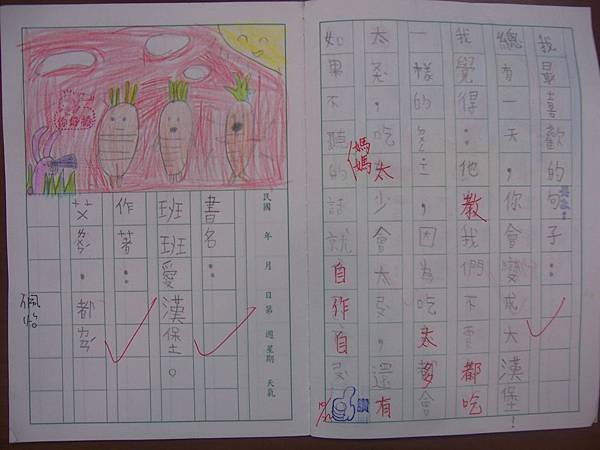 我最喜歡的句子：
總有一天，你會變成大漢堡！
我覺得：他教我們不要都吃
一樣的，因為吃太多都會
太，吃太少會太，還有
如果不聽媽媽的話就自作自受
讚
民國 年 月 日第 週星期 天氣
書名：
班班愛漢堡。
作著：
艾．都